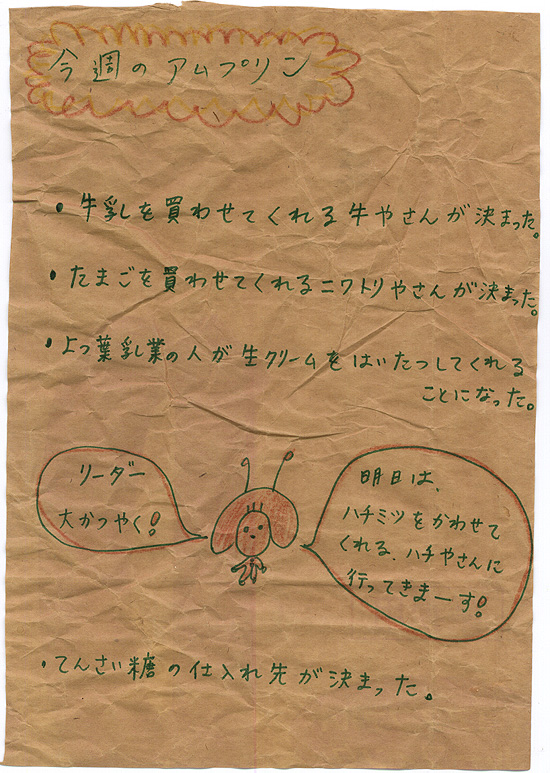 今週のアムプリン
・牛乳を買わせてくれる牛やさんが決まった。
・たまごを買わせてくれるニワトリやさんが決まった。
・よつ葉乳業の人が生クリームをはいたつしてくれる
ことになった。
リーダー
大かつやく!
明日は、
ハチミツをかわせて
くれる、ハチやさんに
行ってきまーす!
・てんさい糖の仕入れ先が決まった。